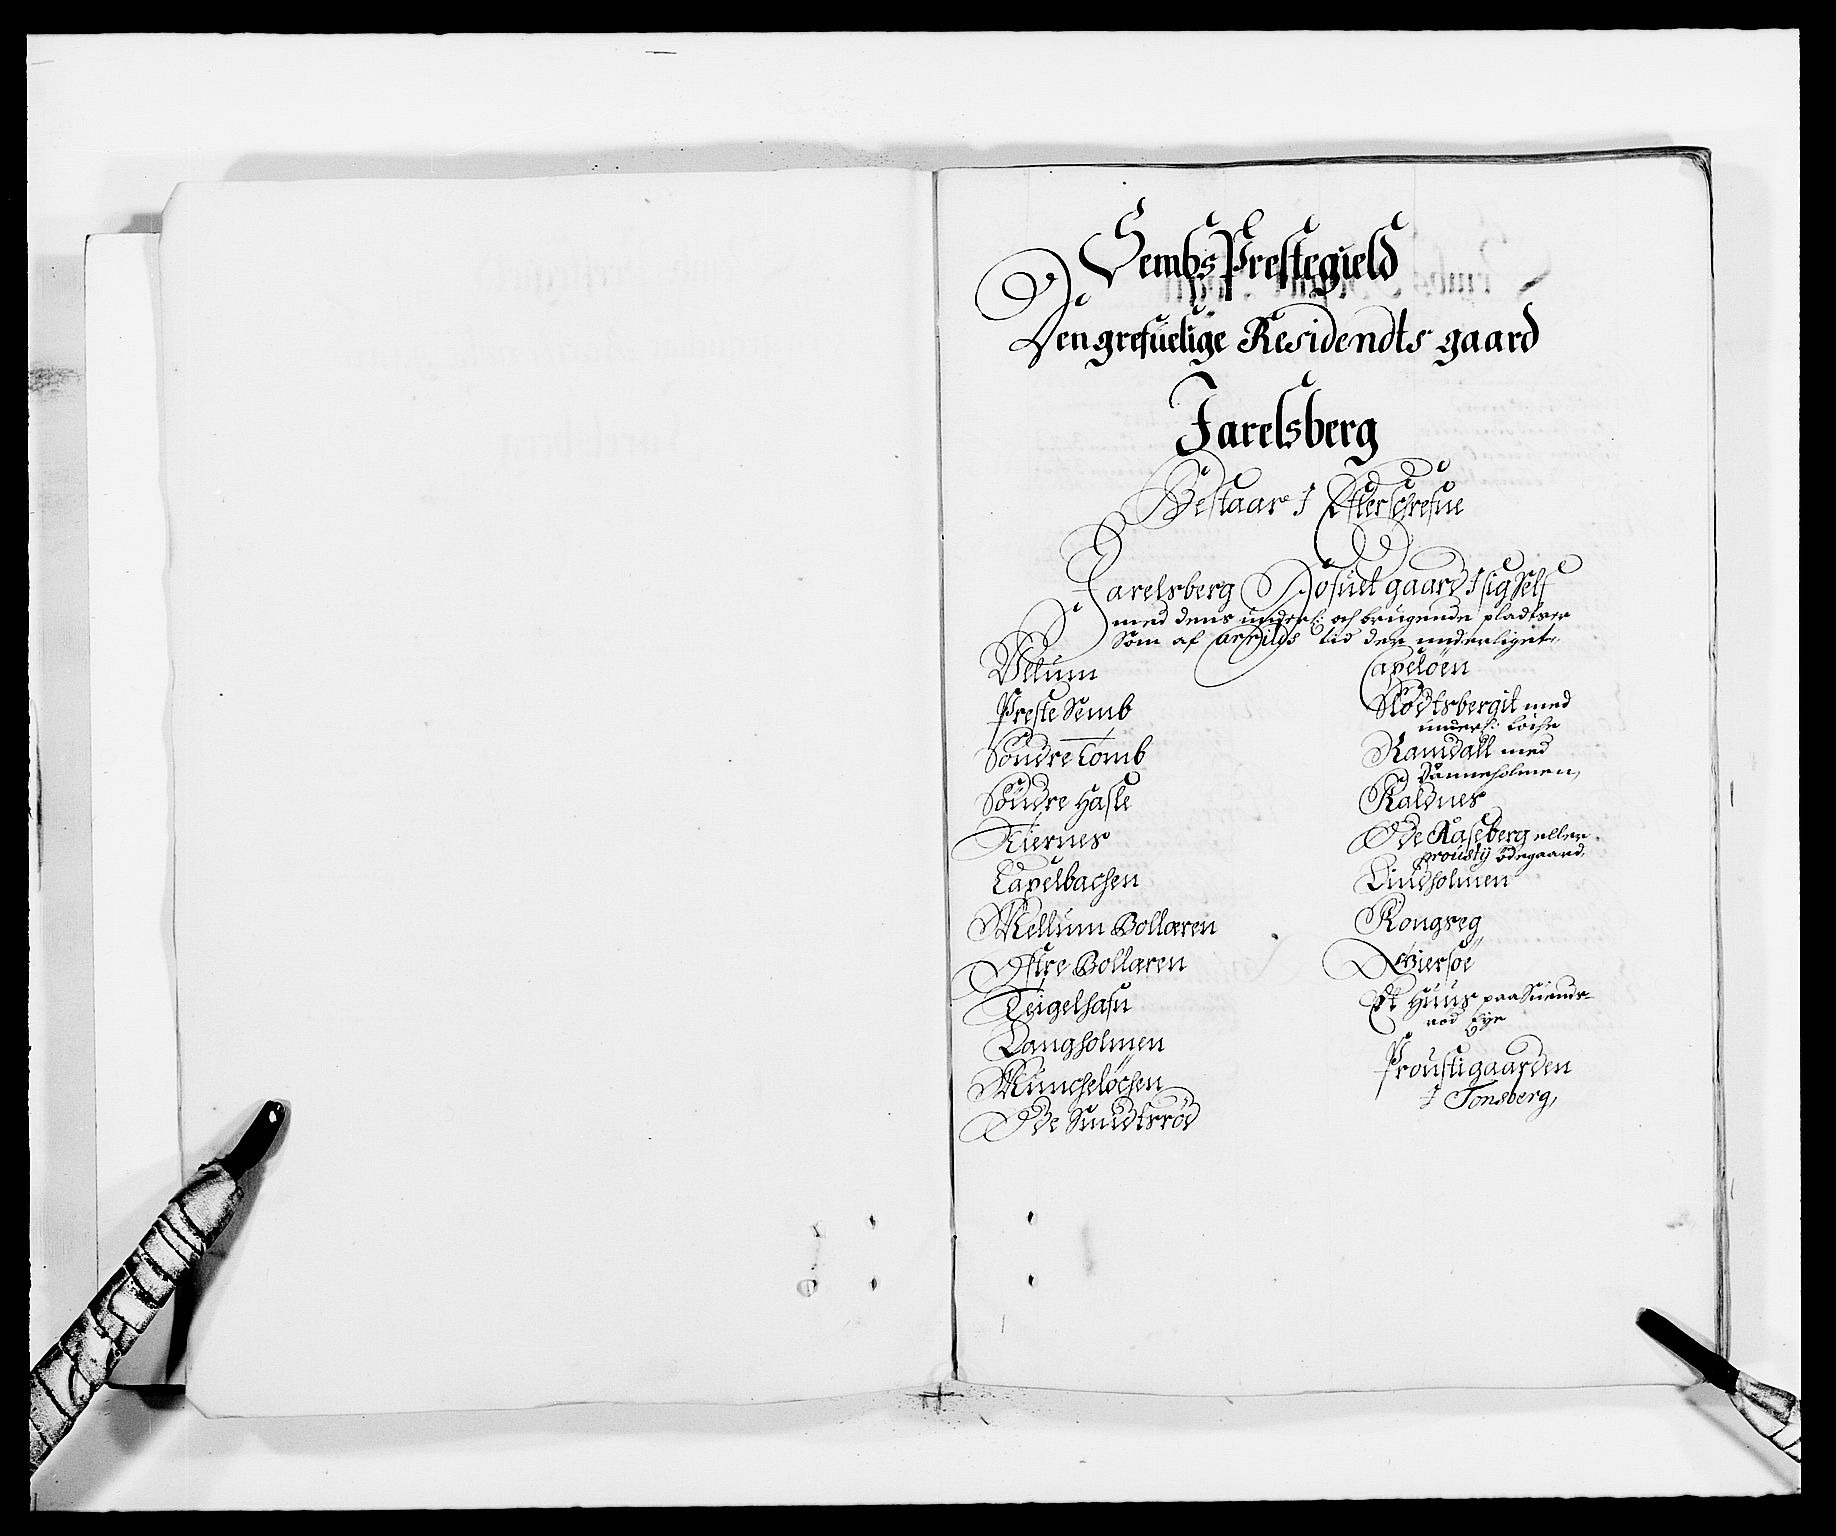 Sembs Prestegield
Den grefuelige Residendts gaard
Jarelsberg
Bestaar I Efterschrefue
Jarelsberg Hofuet gaard I sig Self
med dens underl: och brugende pladtser
Som af arrilds tid der underliget,
Velum
Preste Semb
Söndre Tomb
Söndre Hasle
Kiernes
Capelbachen
Mellum Bollæren
Østre Bollæren
Teigelhafu
Langholmen
Muncheløchen
Øde Smidtsröd
Capeløen
Slodtsbergit med
underl: Löche
Ramdall med
Kaldnes
Øde Raseberg eller
prousty ödegaard,
Lindholmen
Kongseg
Et Huus paa
rød Eye
Proustigaarden
I Tonsberg,